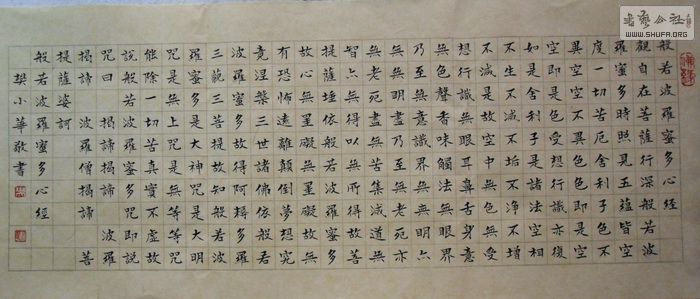 書藝公社
WWW.SHUFA.ORG
般若波羅蜜多心經
觀自在菩薩行深般若波
羅蜜多時照見五蘊皆空
度一切苦厄舍利子色不
異空空不異色色即是空
空即是色受想行識亦復
如是舍利子是諸法空相
不生不滅不垢不淨不增
不減是故空中無色無受
想行識無眼耳鼻舌身意
無色聲香味觸法無眼界
乃至無意識界無無明亦
無無明盡乃至無老死亦
無老死盡無苦集滅道無
智亦無得以無所得故菩
提薩埵依般若波羅蜜多
故心無罣礙無罣礙故無
有恐怖遠離顛倒夢想究
竟涅槃三世諸佛依般若
波羅蜜多故得阿耨多羅
三藐三菩提故知般若波
羅蜜多是大神咒是大明
咒是無上咒是無等等咒
能除一切苦真實不虛故
說般若波羅蜜多咒即說
咒曰 揭諦揭諦 波羅
揭諦 波羅僧揭諦 菩
提薩婆訶
般若波羅蜜多心經
樊小華敬書